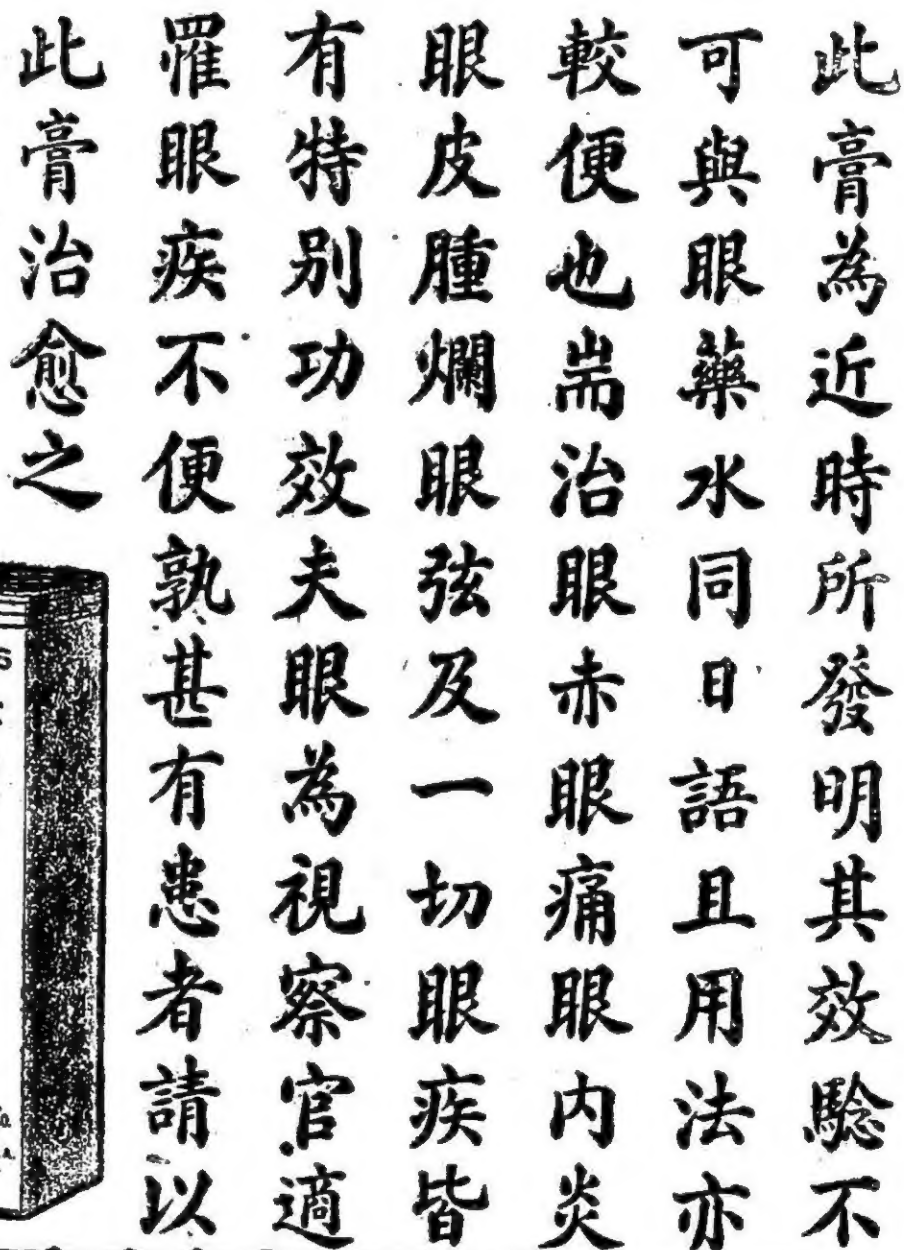 此膏為近時所發明其效騐不
可與眼藥水同日語且用法亦
較便也耑治眼赤眼痛眼内炎
眼皮腫爛眼弦及一切眼疾皆
有特别功效夫眼為視察官適
罹眼疾不便孰甚有患者請以
此膏治愈之
S